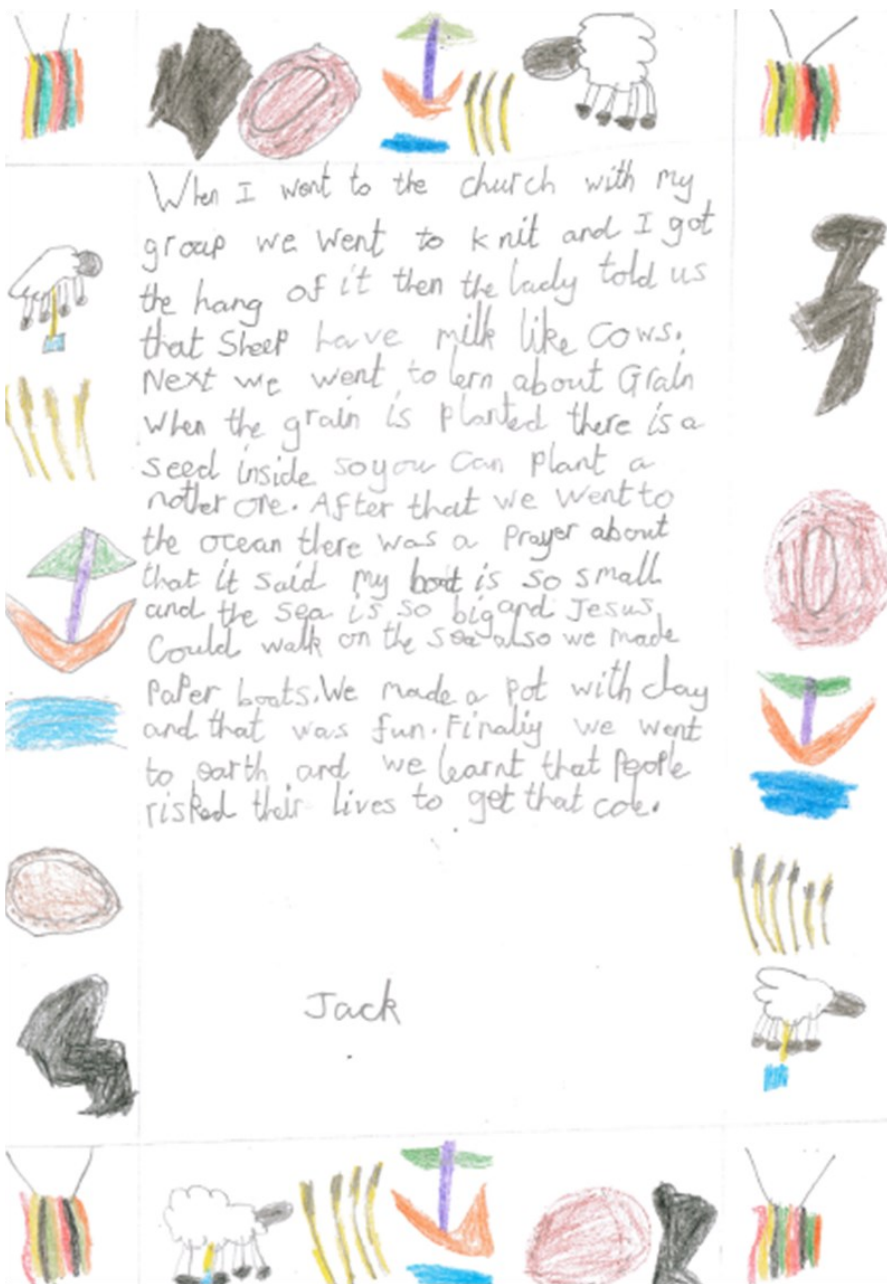 When I went to the church with my
group we went to knit and I got
the hang of it then the lady told us
that Sheep have milk like cows.
Next we went to lern about Grain
when the grain is planted there is a
seed inside so you can plant a
nother one. After that we went to
the ocean there was a prayer about
that it said my boat is so small
and the sea is so big and Jesus
Could walk on the sea also we made
paper boats. We made a pot with clay
and that was fun. Finaliy we went
to earth and we learnt that people
risked their lives to get that cole.
Jack